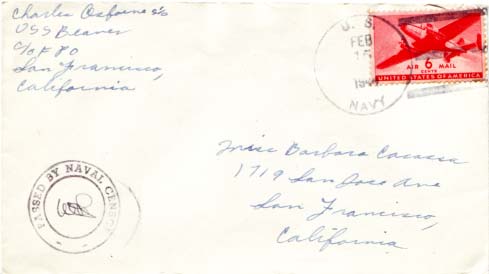 Charles Osborne
USS Beaver
c/o F PO
San Francisco,
California
U. S.
FEB
NAVY
6
CENTS
AIR MAIL
UNITED STATES OF AMERICA
Miss Barbara
1719 San Jose Ave
San Francisco,
California
PASSED BY NAVAL CENSOR